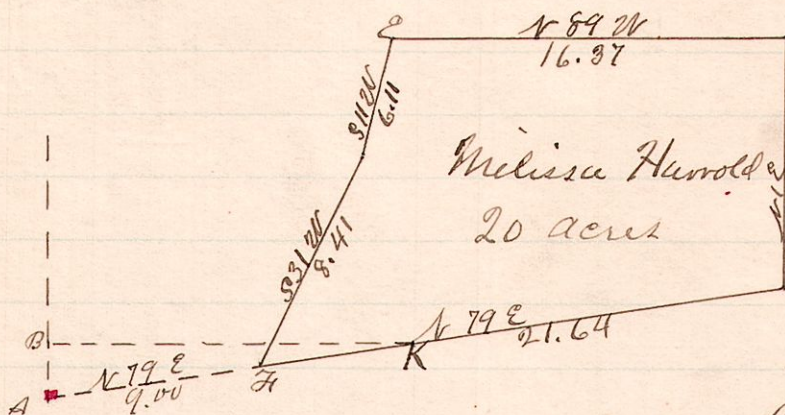 E
N 89 W
16.37
S 11 W
6.11
Melissa Harrold
20 acres
N 1 E
S 31 W
8.41
B
N 79 E
21.64
K
N 79 E
9.00
H
A